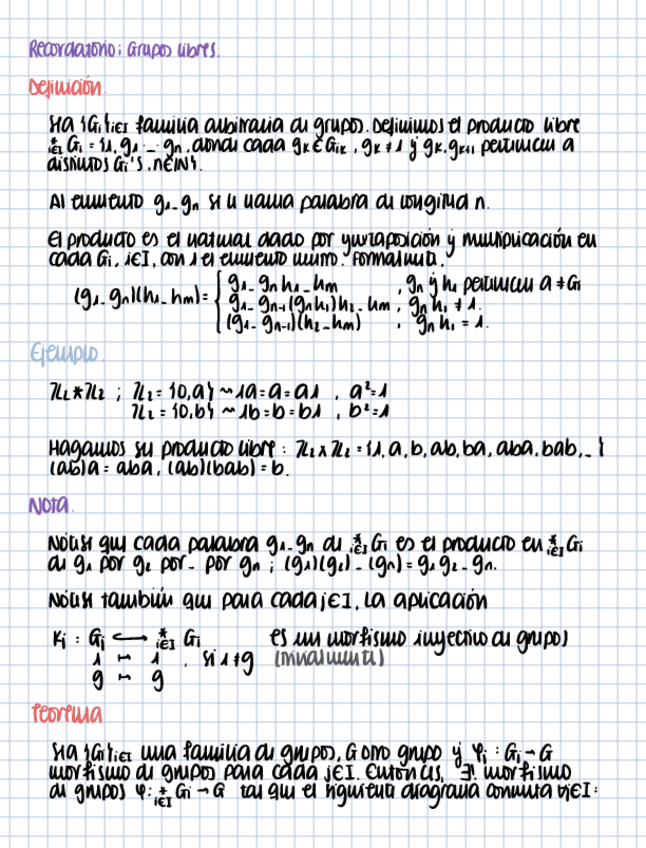 Recordatorio: Grupos libres.
Definición.
Sea {Gi}i∈I familia arbitraria de grupos. Definimos el producto libre
*i∈I Gi = {1, g1 ... gn, donde cada gk ∈ Gik, gk ≠ 1 y gk, gk+1 pertenecen a
distintos Gi's, n∈ℕ}.
Al elemento g1...gn se le llama palabra de longitud n.
El producto es el natural dado por yuxtaposición y multiplicación en
cada Gi, i∈I, con 1 el elemento neutro. Formalmente,
(g1...gn)(h1...hm) = { g1...gn h1...hm , gn y h1 pertenecen a ≠ Gi
g1...gn-1(gnh1)h2...hm , gn h1 ≠ 1.
(g1...gn-1)(h2...hm) , gn h1 = 1.
Ejemplo.
ℤ2 * ℤ2 ; ℤ2 = {0,a} ~ 1a = a = a1 , a² = 1
ℤ2 = {0,b} ~ 1b = b = b1 , b² = 1
Hagamos su producto libre : ℤ2 * ℤ2 = {1, a, b, ab, ba, aba, bab, ... }
(ab)a = aba, (ab)(bab) = b.
Nota.
Nótese que cada palabra g1...gn de *i∈I Gi es el producto en *i∈I Gi
de g1 por g2 por ... por gn ; (g1)(g2) ... (gn) = g1 g2 ... gn.
Nótese también que para cada j∈I, la aplicación
Kj : Gj ↪ *i∈I Gi es un morfismo inyectivo de grupos
1 ↦ 1 , si 1≠g (trivialmente)
g ↦ g
Teorema
Sea {Gi}i∈I una familia de grupos, G otro grupo y φj : Gj → G
morfismo de grupos para cada j∈I. Entonces, ∃! morfismo
de grupos φ: *i∈I Gi → G tal que el siguiente diagrama conmuta ∀j∈I: